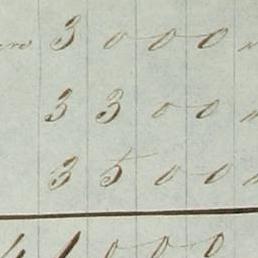 3000
3300
3500
000